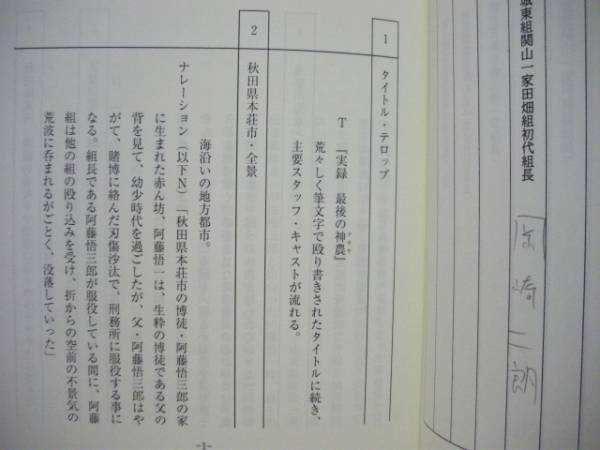 城東組関山一家田畑組初代組長
崎二朗
1
タイトル・テロップ
T 『実録 最後の神農』
ヤクザ
荒々しく筆文字で殴り書きされたタイトルに続き、
主要スタッフ・キャストが流れる。
2
秋田県本荘市・全景
海沿いの地方都市。
ナレーション(以下N)「秋田県本荘市の博徒・阿藤悟三郎の家
に生まれた赤ん坊、阿藤悟一は、生粋の博徒である父の
背を見て、幼少時代を過ごしたが、父・阿藤悟三郎はや
がて、賭博に絡んだ刃傷沙汰で、刑務所に服役する事に
なる。組長である阿藤悟三郎が服役している間に、阿藤
組は他の組の殴り込みを受け、折からの空前の不景気の
荒波に呑まれるがごとく、没落していった」
-1-